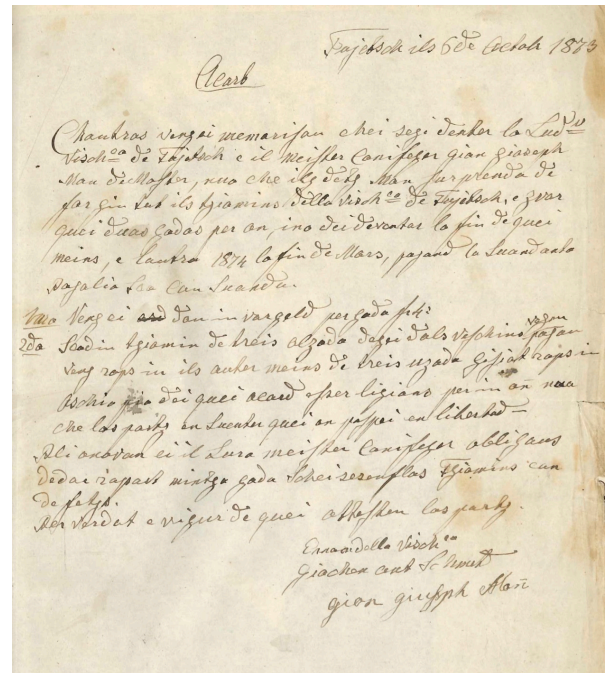 Tujetsch ils 6 de Octob 1873
Acard
Chautras vengei memorisau chei segi denter la Lud
Visch de Tujetsch e il meister Canifeger Gian Giaseph
Man de Moster, nua che ilg detg Man surprenda de
far giu tut ils tgiamins della Visch de Tujetsch, e zvar
quei duas gadas per on, ina dei deventar la fin de quei
meins, e l'autra 1874 la fin de Mars, pagand la Suandonta
Pagalia Sco Cau Suonda.
1mo Veng ei dau in vargeld per gada fr 4:
2do Scadin tgiamin de treis alzada degi dals Vischins vegni pagau
veng raps in ils auter meins de treis alzada raps in
dei quei acard esser ligiaus per in on nua
che las parts en Suenter quei on puspei en libertad —
Ali anavon ei il Sura meister Canifeger obligaus
de dar rapart mintga gada Schei sesenflas tgiamins cun
de fetgs.
Per verdat e vigur de quei attestan las parts.
En num della Visch
Giachen Ant Schmid
gion giuseph Man